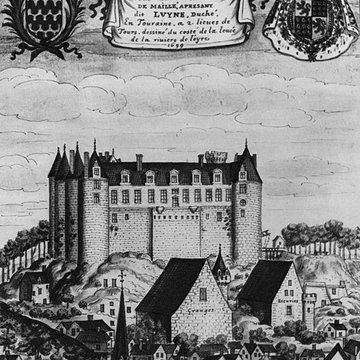 DE MAILLE, APRESANT
dit LUYNE, Duché,
En Touraine, a 2 lieues de
Tours, dessiné du costé de la levée
de la riviere de loyre.
1699
Granges